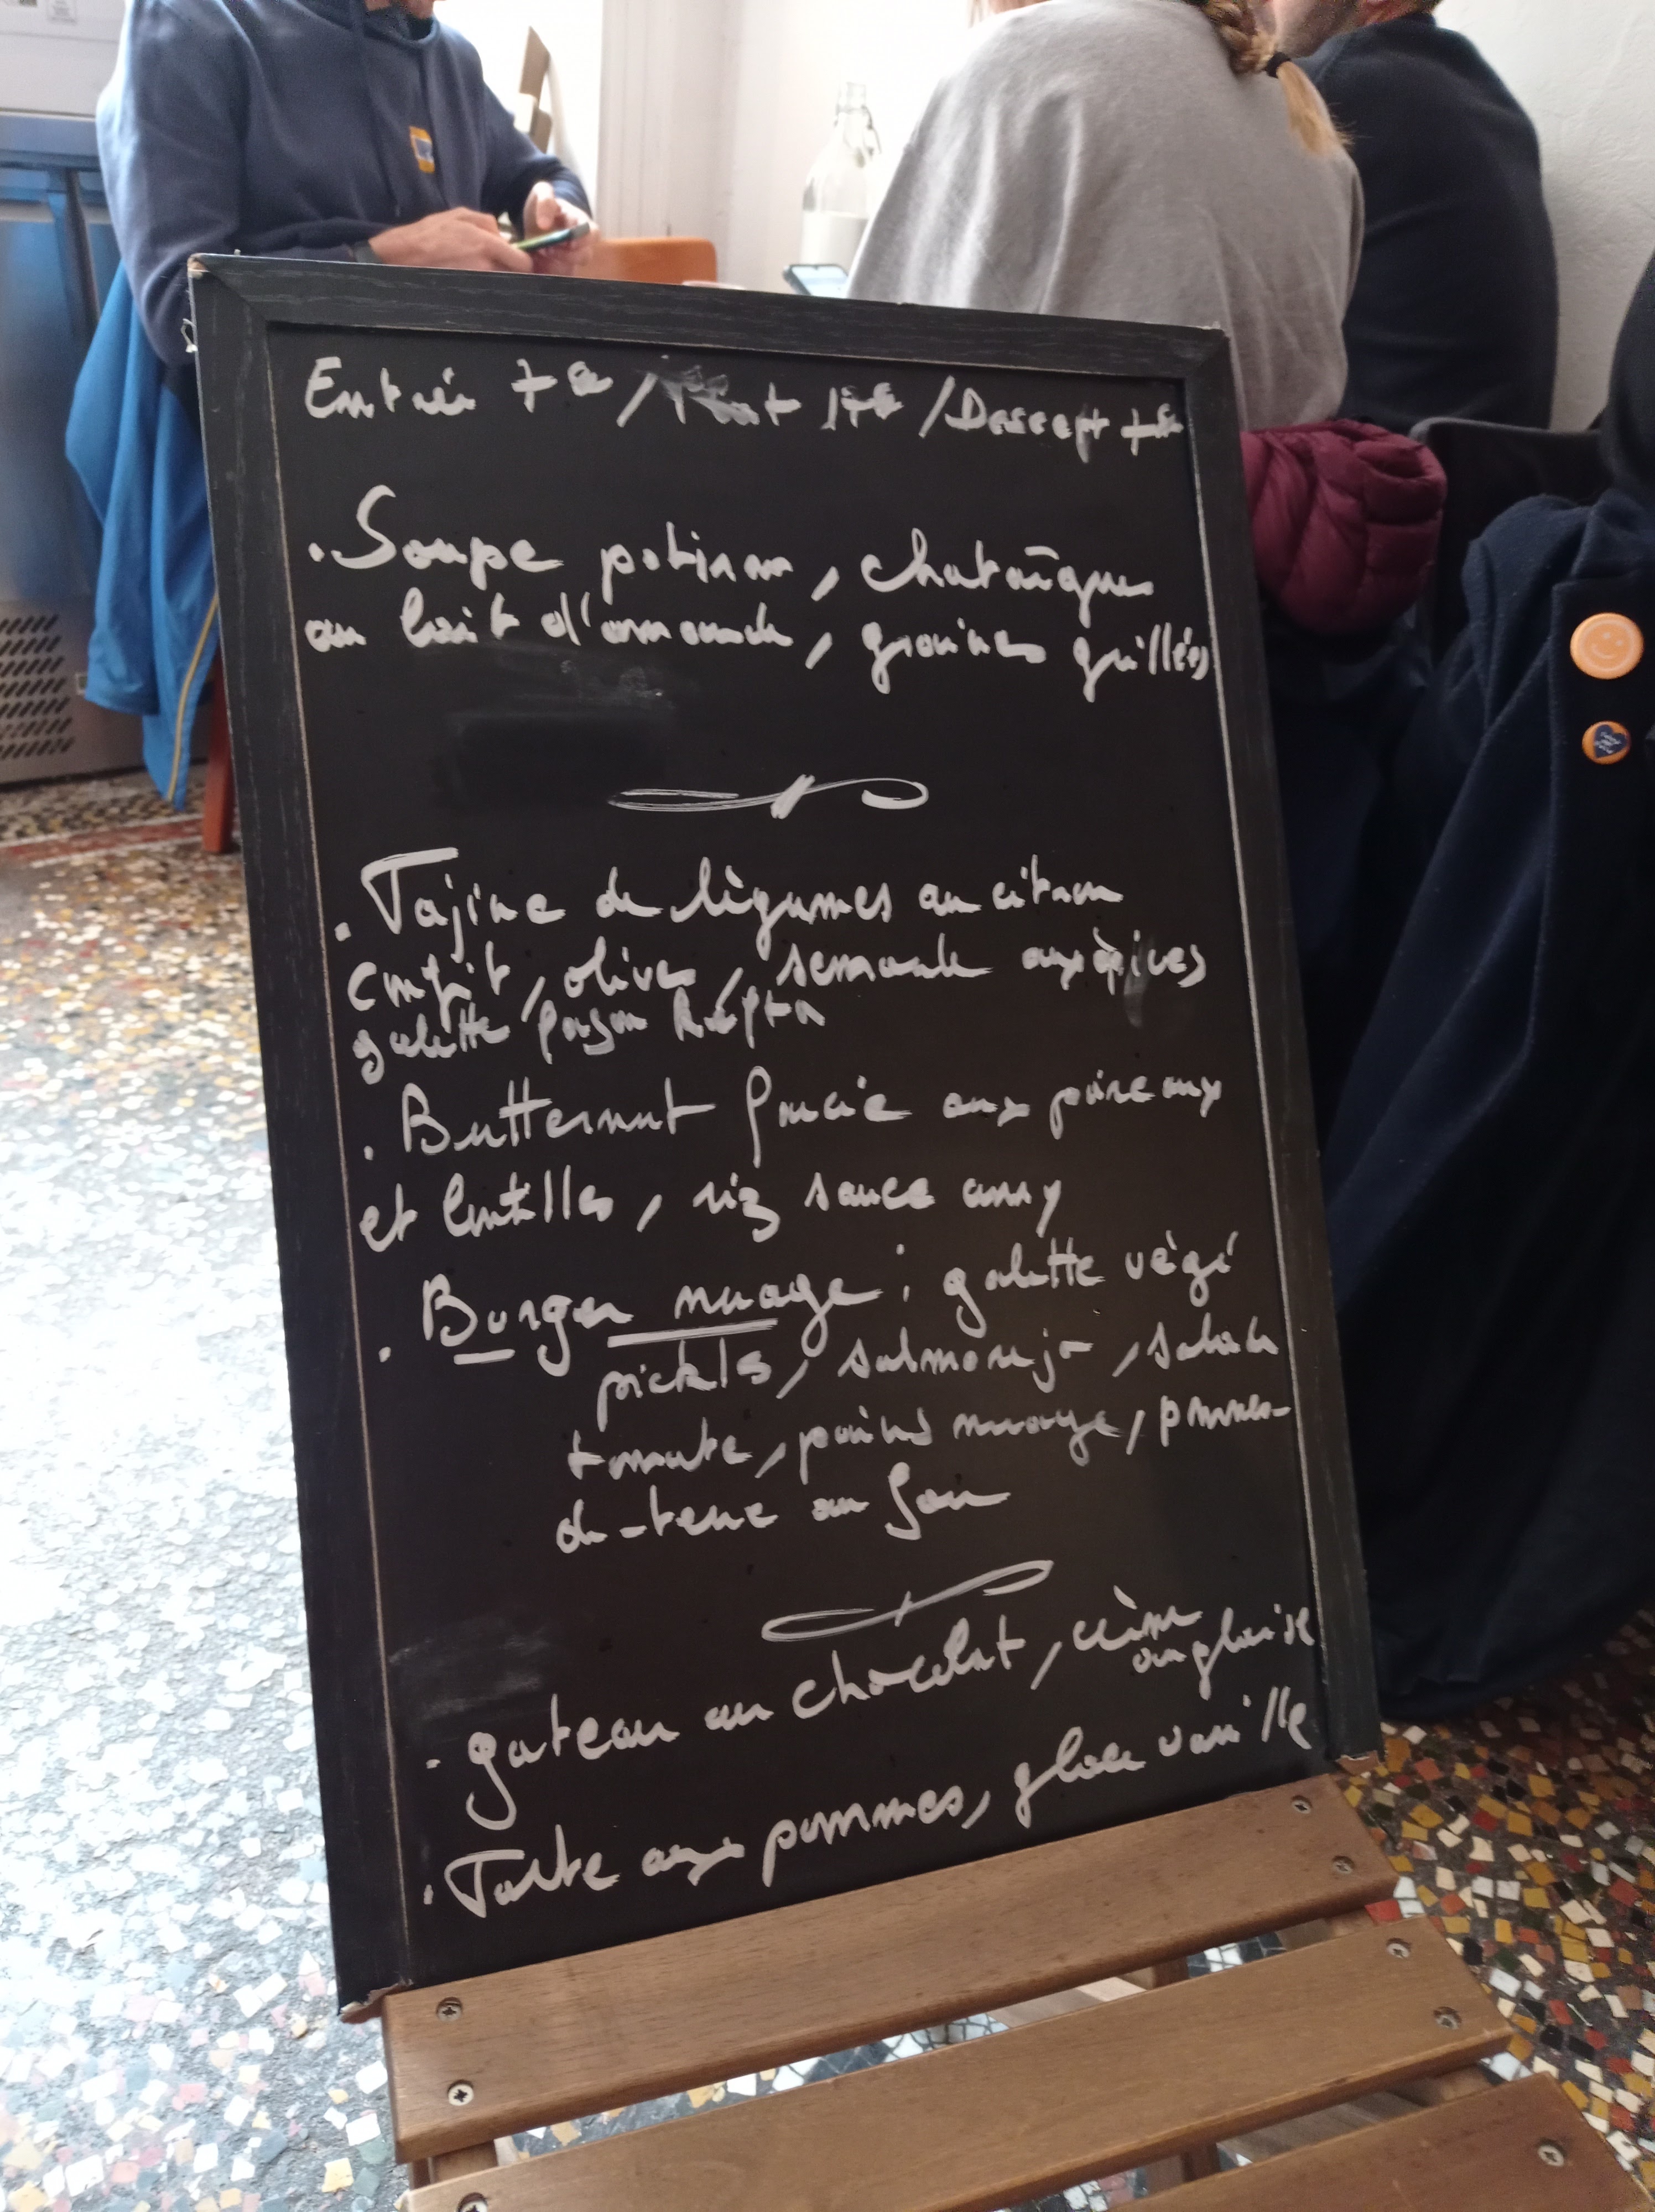 Entrée 7€ / Plat 17€ / Dessept 7€
. Soupe potiron, chataîgnes
au lait d'amande, graines grillées
. Tajine de légumes au citron
confit, olives, semoule aux épices
galette façon
. Butternut farcie aux poireaux
et lentilles, riz sauce curry
. Burger nuage : galette végé
pickls, salmorejo, salade
tomate, pains nuage, pommes-
de-terre au four
. gateau au chocolat, crème
anglaise
. Tarte aux pommes, glace vanille